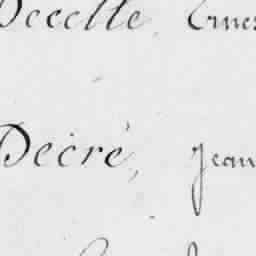 Decelle, Ernes
Décré, Jean